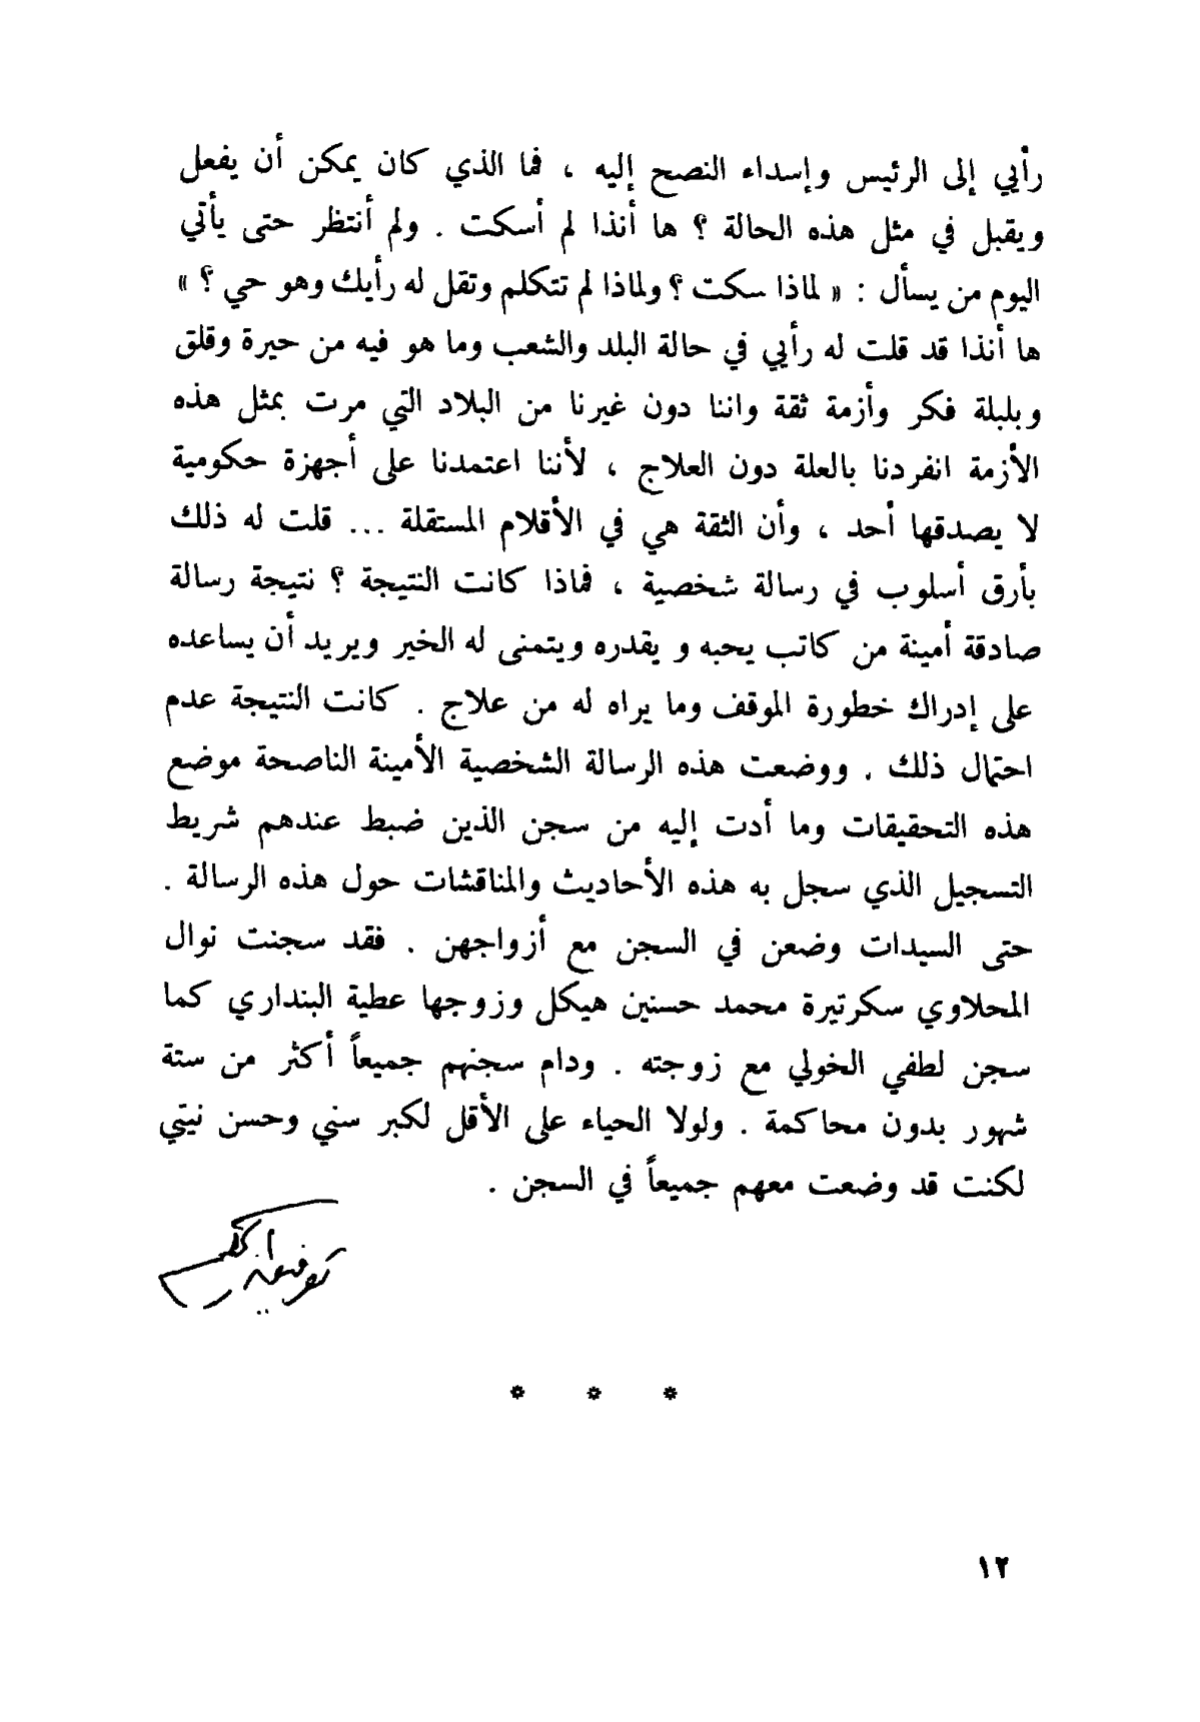 رأيي إلى الرئيس وإسداء النصح إليه ، فما الذي كان يمكن أن يفعل
ويقبل في مثل هذه الحالة ؟ ها أنذا لم أسكت . ولم أنتظر حتى يأتي
اليوم من يسأل : « لماذا سكت ؟ ولماذا لم تتكلم وتقل له رأيك وهو حي ؟ »
ها أنذا قد قلت له رأيي في حالة البلد والشعب وما هو فيه من حيرة وقلق
وبلبلة فكر وأزمة ثقة واننا دون غيرنا من البلاد التي مرت بمثل هذه
الأزمة انفردنا بالعلة دون العلاج ، لأننا اعتمدنا على أجهزة حكومية
لا يصدقها أحد ، وأن الثقة هي في الأقلام المستقلة ... قلت له ذلك
بأرق أسلوب في رسالة شخصية ، فماذا كانت النتيجة ؟ نتيجة رسالة
صادقة أمينة من كاتب يحبه و يقدره ويتمنى له الخير ويريد أن يساعده
على إدراك خطورة الموقف وما يراه له من علاج . كانت النتيجة عدم
احتمال ذلك . ووضعت هذه الرسالة الشخصية الأمينة الناصحة موضع
هذه التحقيقات وما أدت إليه من سجن الذين ضبط عندهم شريط
التسجيل الذي سجل به هذه الأحاديث والمناقشات حول هذه الرسالة .
حتى السيدات وضعن في السجن مع أزواجهن . فقد سجنت نوال
المحلاوي سكرتيرة محمد حسنين هيكل وزوجها عطية البنداري كما
سجن لطفي الخولي مع زوجته . ودام سجنهم جميعاً أكثر من ستة
شهور بدون محاكمة . ولولا الحياء على الأقل لكبر سني وحسن نيتي
لكنت قد وضعت معهم جميعاً في السجن .
توفيق الحكيم
* * *
١٢